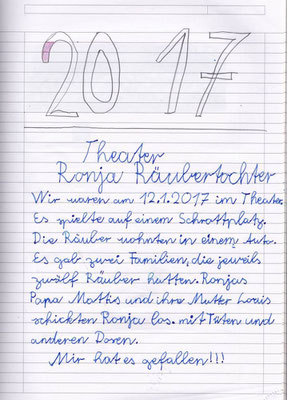 2017
Theater
Ronja Räubertochter
Wir waren am 12.1.2017 im Theater.
Es spielte auf einem Schrottplatz.
Die Räuber wohnten in einem Auto.
Es gab zwei Familien, die jeweils
zwölf Räuber hatten. Ronjas
Papa Mattis und ihre Mutter Lovis
schickten Ronja los. mit Tüten und
anderen Dosen.
Mir hat es gefallen!!!